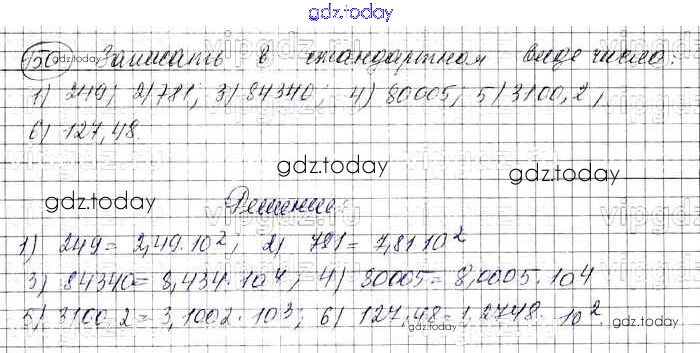 gdz.today
150 Записать в стандартном виде число:
1) 249; 2) 781; 3) 84340; 4) 80005; 5) 3100,2;
6) 127,48.
gdz.today gdz.today
gdz.today Решение:
1) 249 = 2,49·10²; 2) 781 = 7,81·10²
3) 84340 = 8,434·10⁴; 4) 80005 = 8,0005·10⁴
5) 3100,2 = 3,1002·10³; 6) 127,48 = 1,2748·10²
gdz.today gdz.today